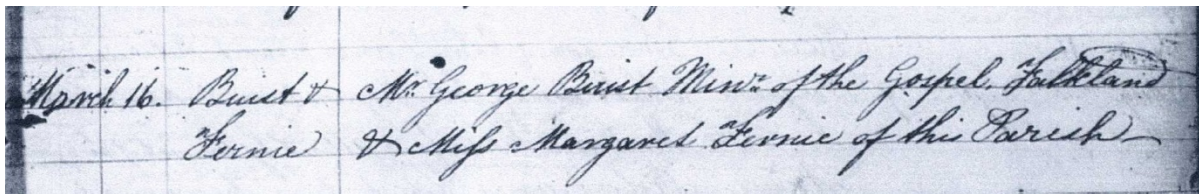 March 16. Buist & Mr. George Buist Minr. of the Gospel, Falkland
Fernie & Miss Margaret Fernie of this Parish